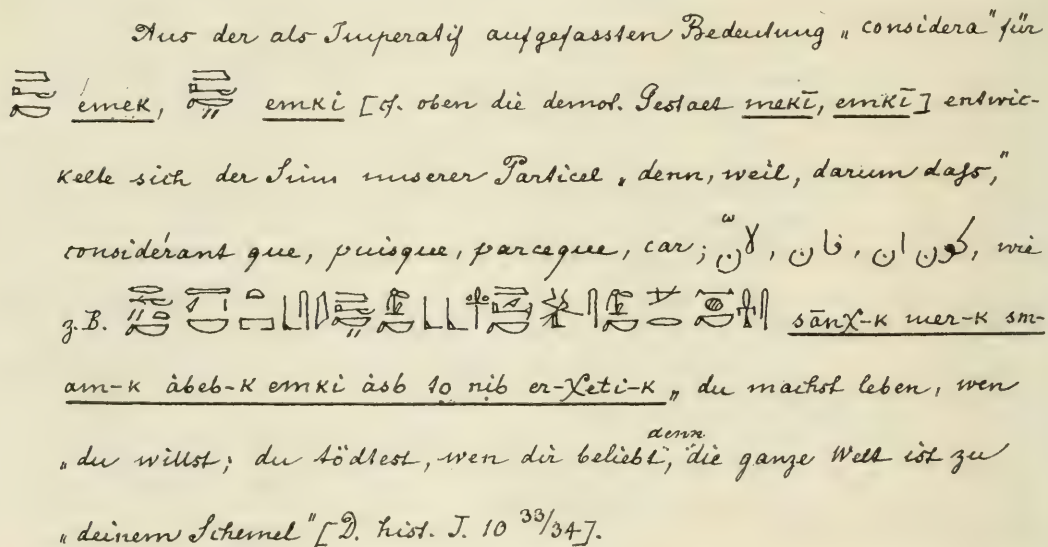 Aus der als Imperatif aufgefassten Bedeutung „considera" für
emek, emki [cf. oben die demot. Gestalt mekī, emkī] entwic-
kelte sich der Sinn unserer Particel „denn, weil, darum daſs,"
considérant que, puisque, parceque, car; لانّ, فان, كون ان, wie
z. B. sānχ-k mer-k sm-
am-k àbeb-k emki àsb to nib er-χeti-k „du machst leben, wen
„du willst; du tödtest, wen dir beliebt, denn die ganze Welt ist zu
„deinem Schemel" [D. hist. J. 10 33/34].